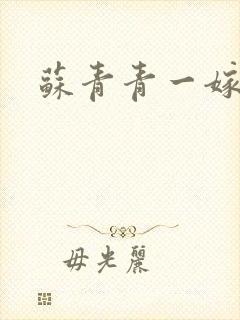 蘇青青一嫁
毋光麗